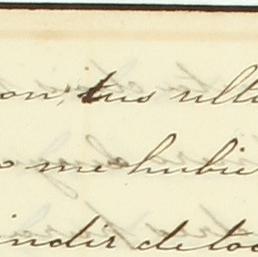 on, tus ulti
o me hubie
indir de to